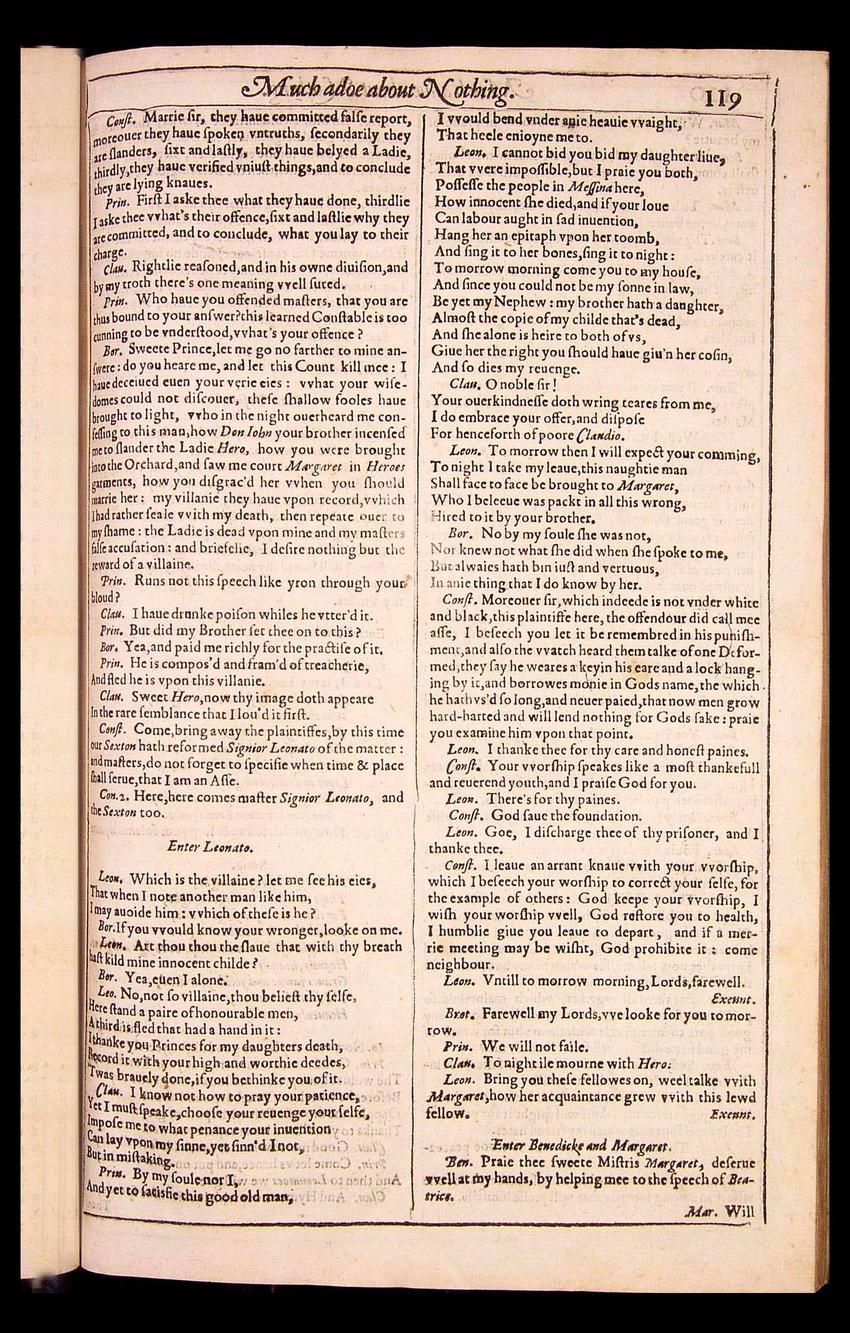 Much adoe about Nothing.
119
Const. Marrie sir, they haue committed false report,
moreouer they haue spoken vntruths, secondarily they
are slanders, sixt and lastly, they haue belyed a Ladie,
thirdly, they haue verified vniust things, and to conclude
they are lying knaues.
Prin. First I aske thee what they haue done, thirdlie
I aske thee vvhat's their offence, sixt and lastlie why they
are committed, and to conclude, what you lay to their
charge.
Clau. Rightlie reasoned, and in his owne diuision, and
by my troth there's one meaning vvell suted.
Prin. Who haue you offended masters, that you are
thus bound to your answer? this learned Constable is too
cunning to be vnderstood, vvhat's your offence?
Bor. Sweete Prince, let me go no farther to mine an-
swere: do you heare me, and let this Count kill mee: I
haue deceiued euen your verie eies: vvhat your wise-
domes could not discouer, these shallow fooles haue
brought to light, vvho in the night ouerheard me con-
fessing to this man, how Don Iohn your brother incensed
me to slander the Ladie Hero, how you were brought
into the Orchard, and saw me court Margaret in Heroes
garments, how you disgrac'd her vvhen you should
marrie her: my villanie they haue vpon record, vvhich
I had rather seale vvith my death, then repeate ouer to
my shame: the Ladie is dead vpon mine and my masters
false accusation: and briefelie, I desire nothing but the
reward of a villaine.
Prin. Runs not this speech like yron through your
bloud?
Clau. I haue drunke poison whiles he vtter'd it.
Prin. But did my Brother set thee on to this?
Bor. Yea, and paid me richly for the practise of it.
Prin. He is compos'd and fram'd of treacherie,
And fled he is vpon this villanie.
Clau. Sweet Hero, now thy image doth appeare
In the rare semblance that I lou'd it first.
Const. Come, bring away the plaintiffes, by this time
our Sexton hath reformed Signior Leonato of the matter:
and masters, do not forget to specifie when time & place
shall serue, that I am an Asse.
Con. 2. Here, here comes master Signior Leonato, and
the Sexton too.
Enter Leonato.
Leon. Which is the villaine? let me see his eies,
That when I note another man like him,
I may auoide him: vvhich of these is he?
Bor. If you vvould know your wronger, looke on me.
Leon. Art thou thou the slaue that with thy breath
hast kild mine innocent childe?
Bor. Yea, euen I alone.
Leo. No, not so villaine, thou beliest thy selfe,
Here stand a paire of honourable men,
A third is fled that had a hand in it:
I thanke you Princes for my daughters death,
Record it with your high and worthie deedes,
'Twas brauely done, if you bethinke you of it.
Clau. I know not how to pray your patience,
Yet I must speake, choose your reuenge your selfe,
Impose me to what penance your inuention
Can lay vpon my sinne, yet sinn'd I not,
But in mistaking.
Prin. By my soule nor I,
And yet to satisfie this good old man,
I vvould bend vnder anie heauie vvaight,
That heele enioyne me to.
Leon. I cannot bid you bid my daughter liue,
That vvere impossible, but I praie you both,
Possesse the people in Messina here,
How innocent she died, and if your loue
Can labour aught in sad inuention,
Hang her an epitaph vpon her toomb,
And sing it to her bones, sing it to night:
To morrow morning come you to my house,
And since you could not be my sonne in law,
Be yet my Nephew: my brother hath a daughter,
Almost the copie of my childe that's dead,
And she alone is heire to both of vs,
Giue her the right you should haue giu'n her cosin,
And so dies my reuenge.
Clau. O noble sir!
Your ouerkindnesse doth wring teares from me,
I do embrace your offer, and dispose
For henceforth of poore Claudio.
Leon. To morrow then I will expect your comming,
To night I take my leaue, this naughtie man
Shall face to face be brought to Margaret,
Who I beleeue was packt in all this wrong,
Hired to it by your brother.
Bor. No by my soule she was not,
Nor knew not what she did when she spoke to me,
But alwaies hath bin iust and vertuous,
In anie thing that I do know by her.
Const. Moreouer sir, which indeede is not vnder white
and black, this plaintiffe here, the offendour did call mee
asse, I beseech you let it be remembred in his punish-
ment, and also the vvatch heard them talke of one Defor-
med, they say he weares a key in his eare and a lock hang-
ing by it, and borrowes monie in Gods name, the which
he hath vs'd so long, and neuer paied, that now men grow
hard-harted and will lend nothing for Gods sake: praie
you examine him vpon that point.
Leon. I thanke thee for thy care and honest paines.
Const. Your vvorship speakes like a most thankefull
and reuerend youth, and I praise God for you.
Leon. There's for thy paines.
Const. God saue the foundation.
Leon. Goe, I discharge thee of thy prisoner, and I
thanke thee.
Const. I leaue an arrant knaue vvith your vvorship,
which I beseech your worship to correct your selfe, for
the example of others: God keepe your vvorship, I
wish your worship vvell, God restore you to health,
I humblie giue you leaue to depart, and if a mer-
rie meeting may be wisht, God prohibite it: come
neighbour.
Leon. Vntill to morrow morning, Lords, farewell.
Exeunt.
Brot. Farewell my Lords, vve looke for you to mor-
row.
Prin. We will not faile.
Clau. To night ile mourne with Hero.
Leon. Bring you these fellowes on, weel talke vvith
Margaret, how her acquaintance grew vvith this lewd
fellow. Exeunt.
Enter Benedicke and Margaret.
Ben. Praie thee sweete Mistris Margaret, deserue
vvell at my hands, by helping mee to the speech of Bea-
trice.
Mar. Will